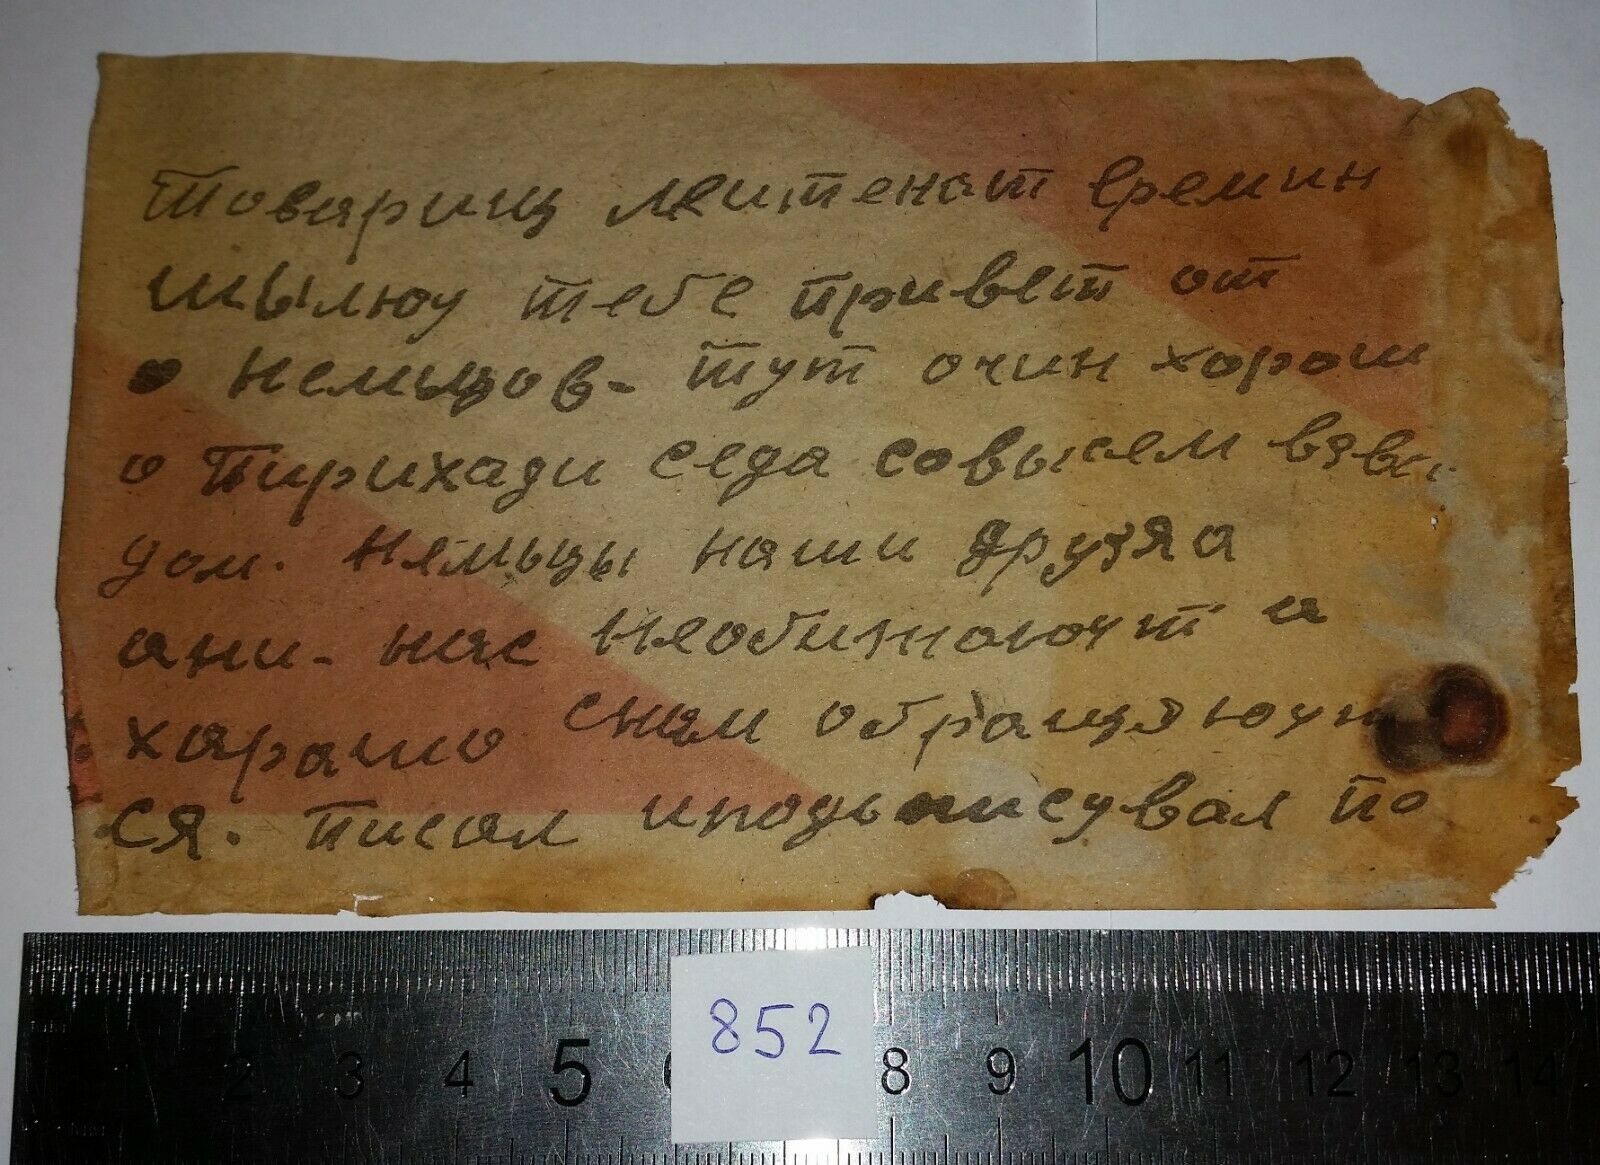 Товарищ леитенат Еремин
шылюу тебе привет от
о немьцов- тут очин хорош
о пирихади седа совысем взвы
дом. немьцы наши друзя а
ани- нас необижаюут и
харашо снам обращяюут
ся. писал иподьписувал по
852
1 2 3 4 5 6 8 9 10 11 12 13 14